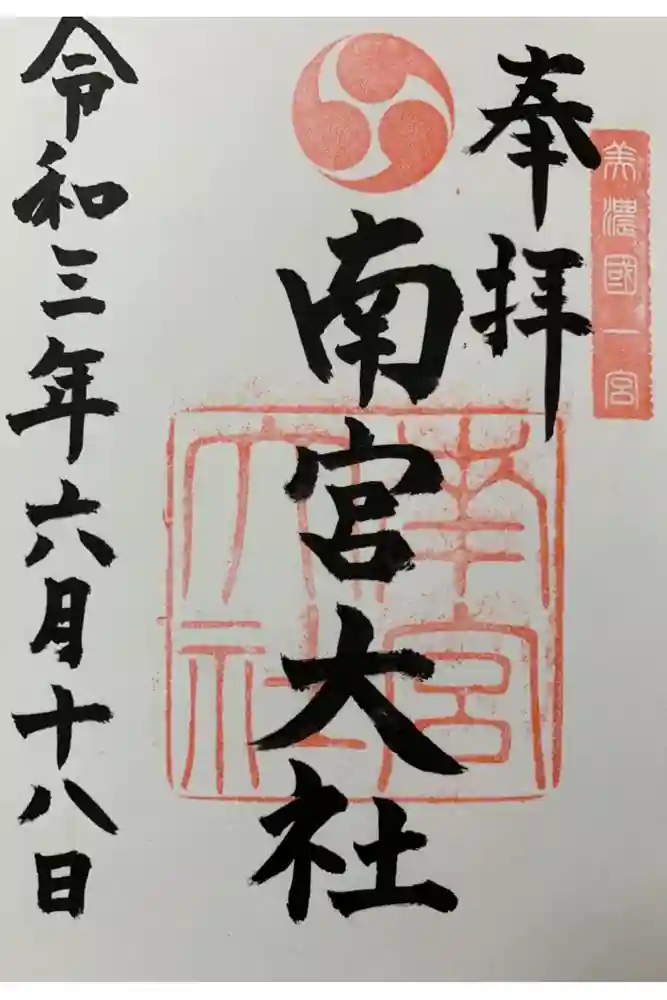 美濃國一宮
奉拝
南宮大社
南宮大社
令和三年六月十八日